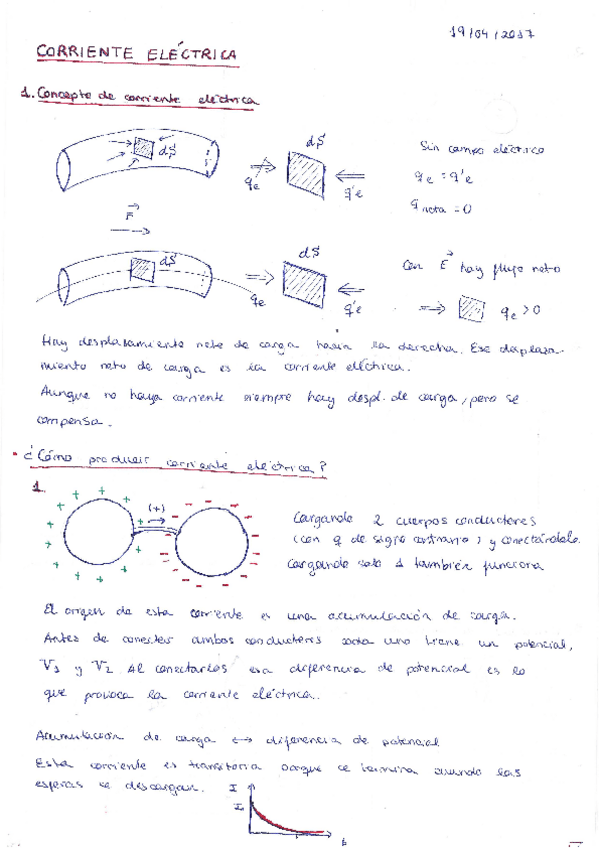 19/04/2017
CORRIENTE ELÉCTRICA
1. Concepto de corriente eléctrica
dS
dS
qe
q'e
Sin campo eléctrico
qe = q'e
qneta = 0
F
dS
dS
qe
q'e
Con E hay flujo neto
qe > 0
Hay desplazamiento neto de carga hacia la derecha. Ese desplaza-
miento neto de carga es la corriente eléctrica.
Aunque no haya corriente siempre hay despl. de carga, pero se
compensa.
• ¿Cómo producir corriente eléctrica?
1.
(+)
Cargando 2 cuerpos conductores
(con q de signo contrario) y conectándolo.
Cargando solo 1 también funciona
El origen de esta corriente es una acumulación de carga.
Antes de conectar ambos conductores cada uno tiene un potencial,
V1 y V2. Al conectarlos esa diferencia de potencial es lo
que provoca la corriente eléctrica.
Acumulación de carga ↔ diferencia de potencial
Esta corriente es transitoria porque se termina cuando las
esferas se descargan.
I
I0
t